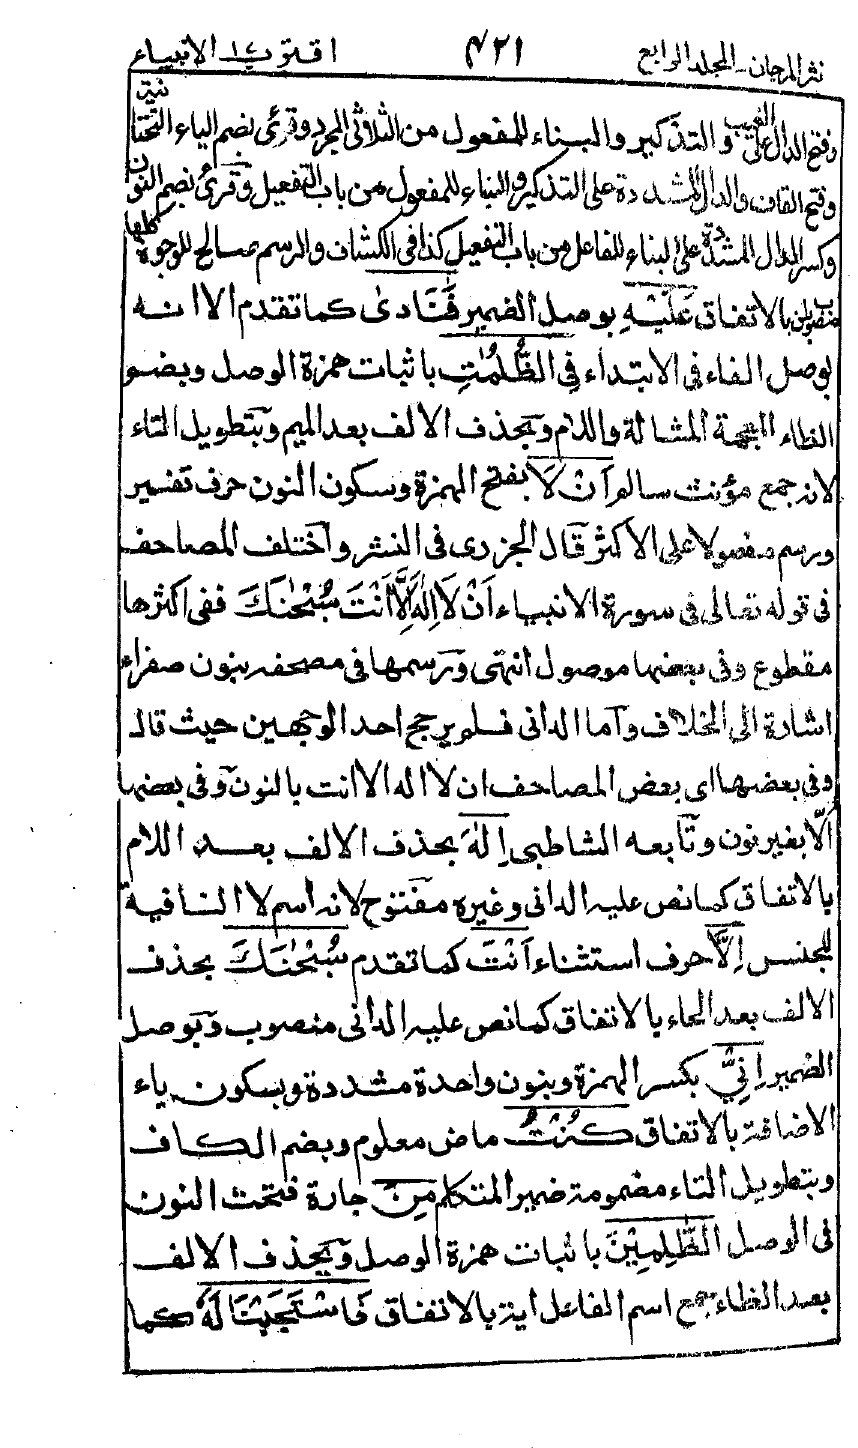 نثر المرجان۔المجلد الرابع ٤٢١ اقترب ١٧ الانبیاء
وفتح الدال علی الغیب والتذکیر والبناء للمفعول من الثلاثی المجرد وقرئ بضم الیاء التحتانیة
وفتح القاف والدال المشددة علی التذکیر والبناء للمفعول من باب التفعیل وقرئ بضم النون
وکسر الدال المشددة علی البناء للفاعل من باب التفعیل کذا فی الکشاف والرسم صالح للوجوه کلها
بالاتفاق عَلَیْهِ بوصل الضمیر فَنَادٰی کما تقدم الا انه
بوصل الفاء فی الابتداء فِی الظُّلُمٰتِ باثبات همزة الوصل وبضم
الظاء المعجمة المشالة واللام وبحذف الالف بعد المیم وبتطویل التاء
لانه جمع مؤنث سالم اَنْ لَا بفتح الهمزة وسکون النون حرف تفسیر
ورسم مفصولا علی الاکثر قال الجزری فی النشر واختلف المصاحف
فی قوله تعالی فی سورة الانبیاء اَنْ لَا اِلٰهَ اِلَّا اَنْتَ سُبْحٰنَکَ ففی اکثرها
مقطوع وفی بعضها موصول انتهی ورسمها فی مصحفه بنون صفراء
اشارة الی الخلاف واما الدانی فلم یرجح احد الوجهین حیث قال
وفی بعضها ای بعض المصاحف ان لا اله الا انت بالنون وفی بعضها
الّا بغیر نون وتابعه الشاطبی اِلٰهَ بحذف الالف بعد اللام
بالاتفاق کما نص علیه الدانی وغیره مفتوح لانه اسم لا النافیة
للجنس اِلَّا حرف استثناء اَنْتَ کما تقدم سُبْحٰنَکَ بحذف
الالف بعد الحاء بالاتفاق کما نص علیه الدانی منصوب وبوصل
الضمیر اِنِّیْ بکسر الهمزة وبنون واحدة مشددة وبسکون یاء
الاضافة بالاتفاق کُنْتُ ماض معلوم وبضم الکاف
وبتطویل التاء مضمومة ضمیر المتکلم مِنَ جارة فتحت النون
فی الوصل الظّٰلِمِیْنَ باثبات همزة الوصل وبحذف الالف
بعد الظاء جمع اسم الفاعل ایة بالاتفاق فَاسْتَجَبْنَا لَهٗ کما